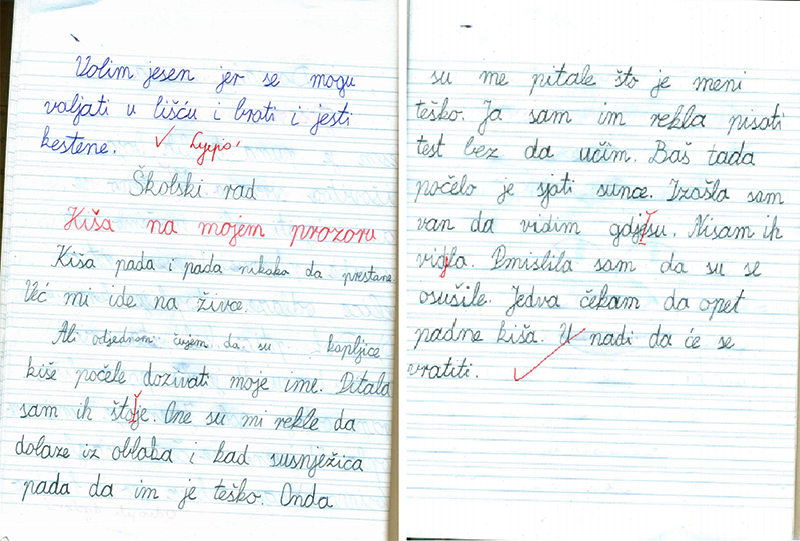 Volim jesen jer se mogu
valjati u lišću i brati i jesti
kestene. Lijepo!
Školski rad
Kiša na mojem prozoru
Kiša pada i pada nikako da prestane.
Već mi ide na živce.
Ali odjednom čujem da su kapljice
kiše počele dozivati moje ime. Pitala
sam ih što je. One su mi rekle da
dolaze iz oblaka i kad susnježica
pada da im je teško. Onda
su me pitale što je meni
teško. Ja sam im rekla pisati
test bez da učim. Baš tada
počelo je sjati sunce. Izašla sam
van da vidim gdje su. Nisam ih
vidjla. Pmislila sam da su se
osušile. Jedva čekam da opet
padne kiša. U nadi da će se
vratiti.